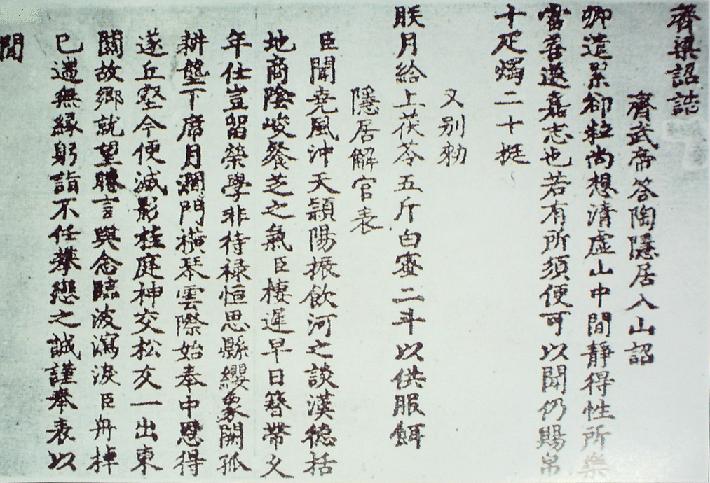 齊梁詔誥
齊武帝答陶隱居入山詔
卿遺累却粒尚想清虛山中閒靜得性所樂
當善遂嘉志也若有所須便可以聞仍賜帛
十疋燭二十挺
又别勅
朕月給上茯苓五斤白蜜二斗以供服餌
隱居解官表
臣聞堯風沖天頴陽振飲河之談漢德括
地商陰峻餐芝之氣臣棲遲早日簪帶久
年仕豈留榮學非待禄恒思縣纓象闕孤
耕壟下席月澗門橫琴雲際始奉中恩得
遂丘壑今便滅影桂庭神交松友一出東
關故鄉就望睠言興念臨波瀉淚臣舟棹
已遄無緣躬詣不任攀戀之誠謹奉表以
聞